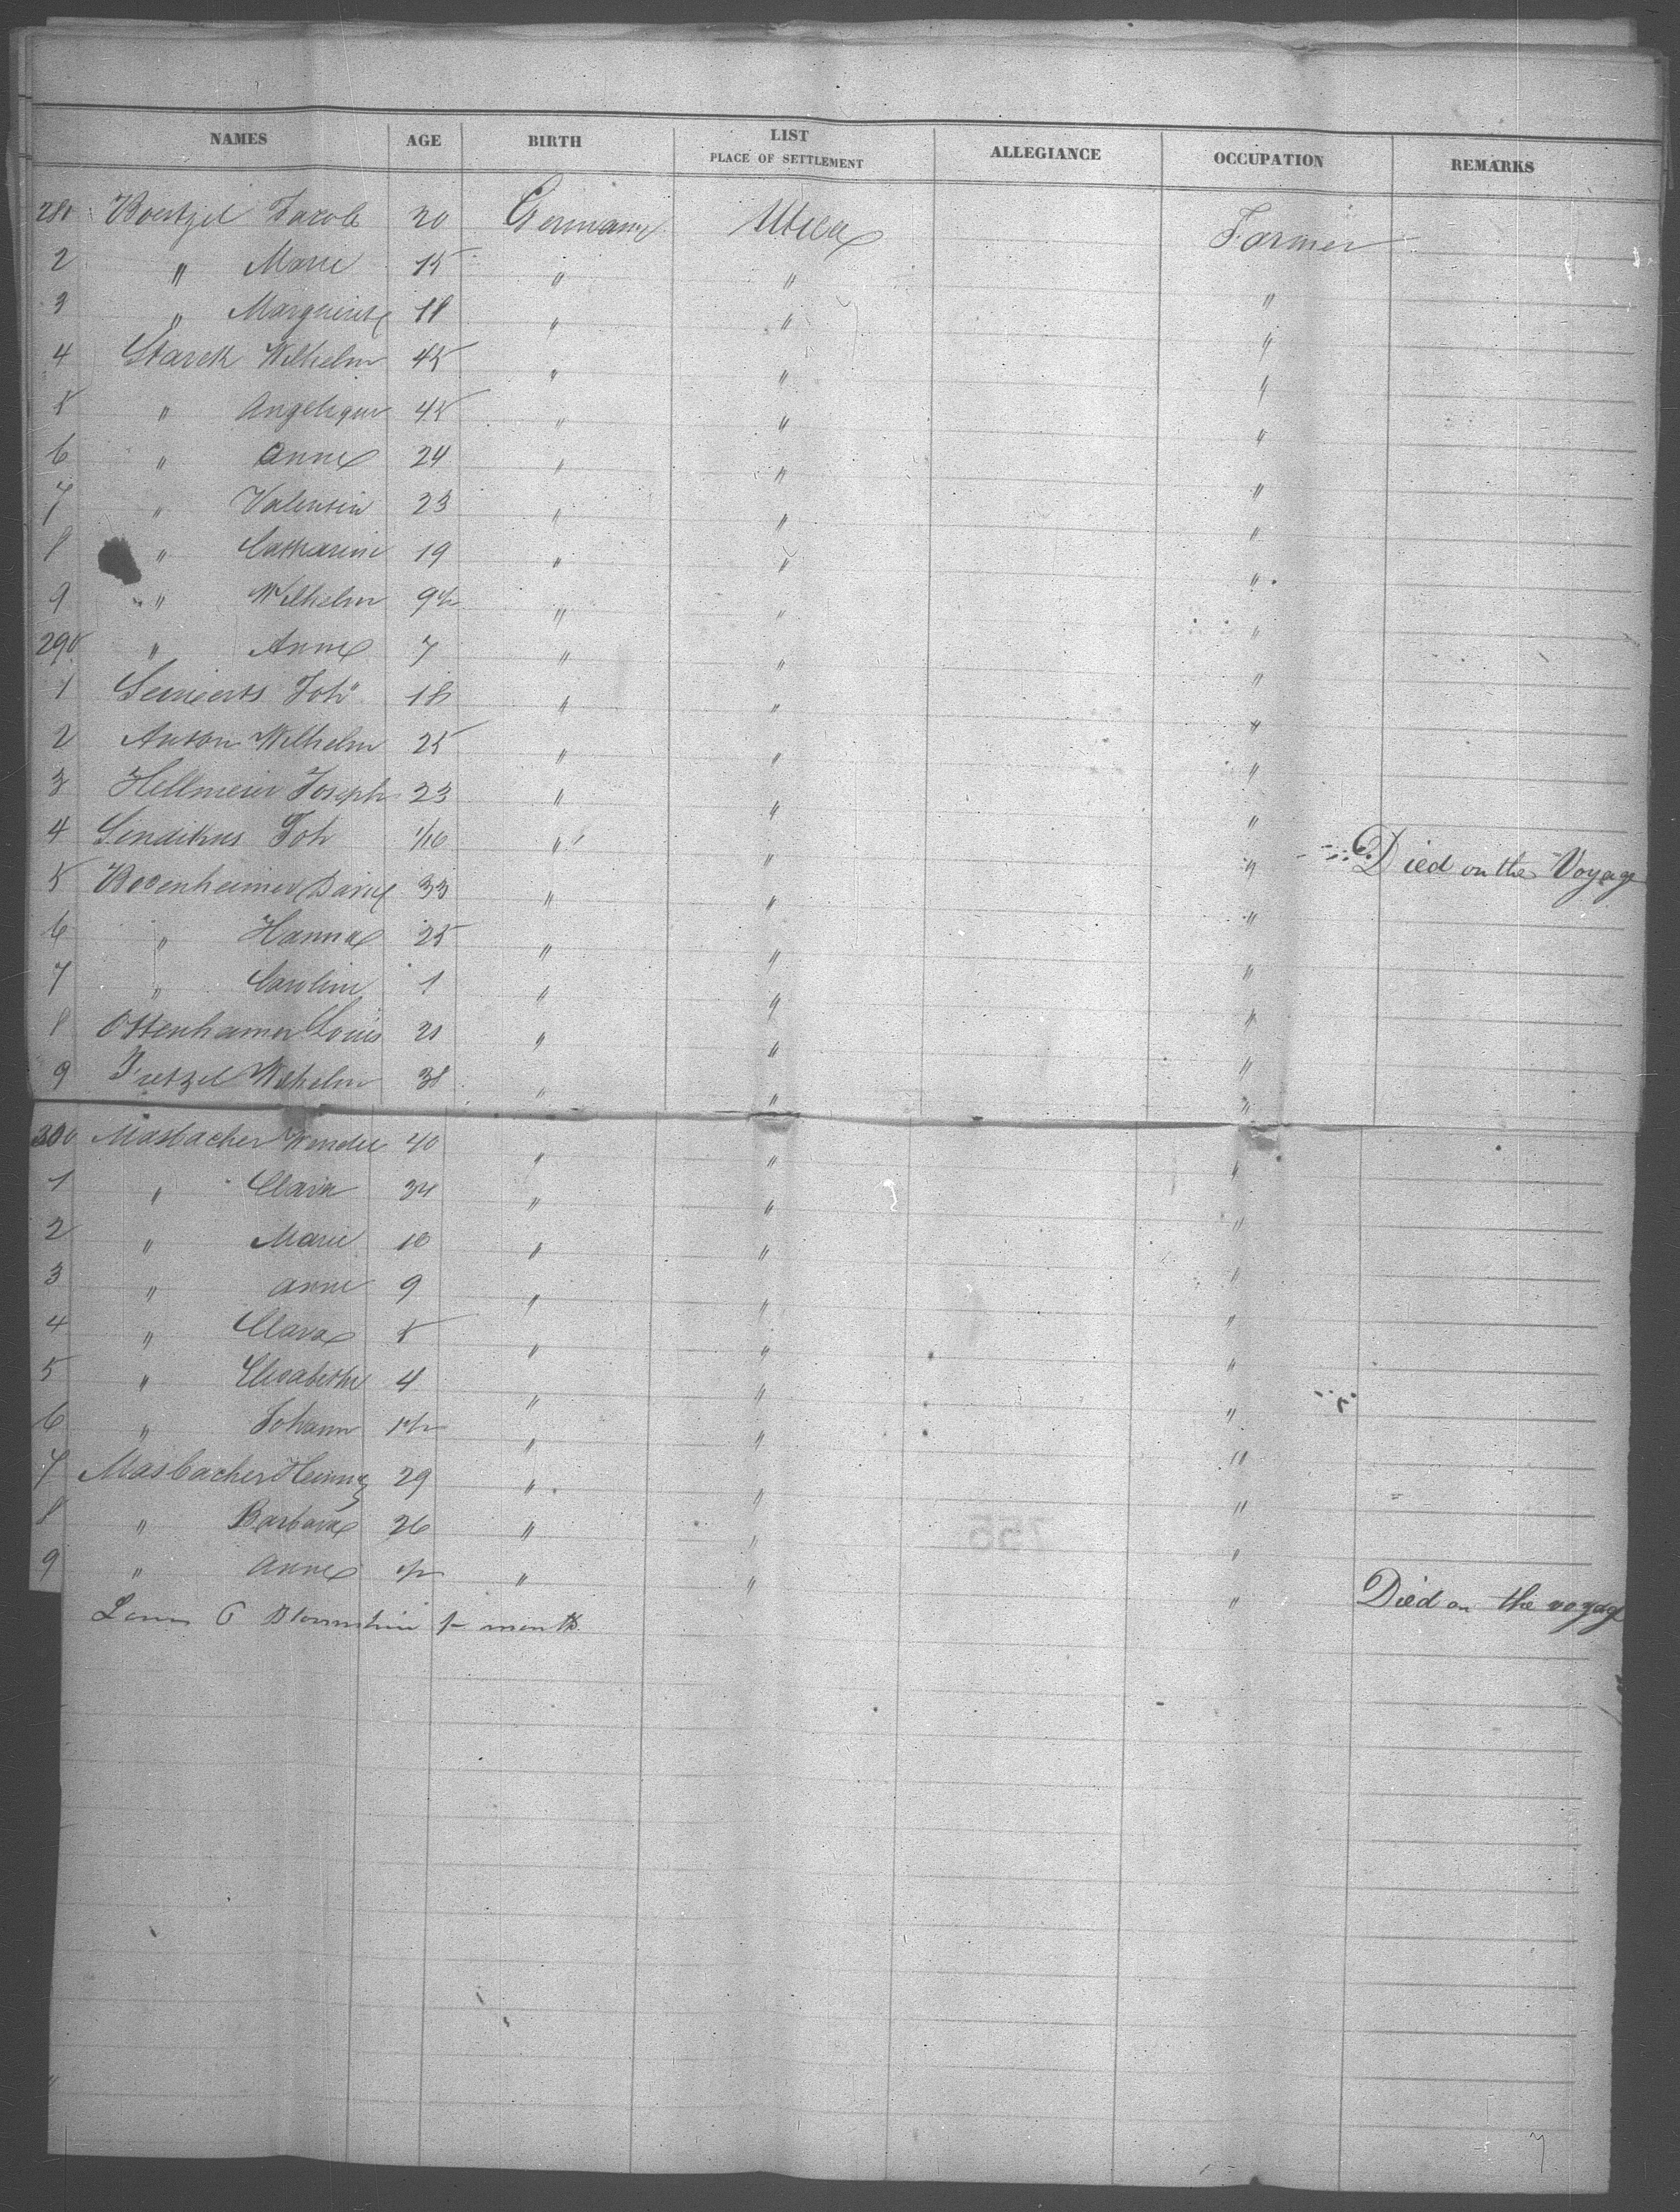 NAMES AGE BIRTH LIST PLACE OF SETTLEMENT ALLEGIANCE OCCUPATION REMARKS
281 Jacob 20 Germany Utica Farmer
2 " Marie 15 " " "
3 " Marguerite 18 " " "
4 Starck Wilhelm 45 " " "
5 " Angelique 45 " " "
6 " Anne 24 " " "
7 " Valentin 23 " " "
8 " Catharine 19 " " "
9 " Wilhelm 9½ " " "
290 " Anne 7 " " "
1 Joh 18 " " "
2 Anton Wilhelm 25 " " "
3 Hellmeier Joseph 23 " " "
4 Joh " " " Died on the Voyage
5 33 " " "
6 " Hanna 25 " " "
7 " Caroline 1 " " "
8 Ottenhamer Louis 21 " " "
9 Wilhelm " " "
300 Masbacher Wendel 40 " " "
1 " Clara 34 " " "
2 " Marie 10 " " "
3 " Anne 9 " " "
4 " Clara 5 " " "
5 " Elisabethe 4 " " "
6 " Johann 1½ " " "
7 Masbacher 29 " " "
8 " Barbara 26 " " "
9 " Anne ½ " " " Died on the voyage
month